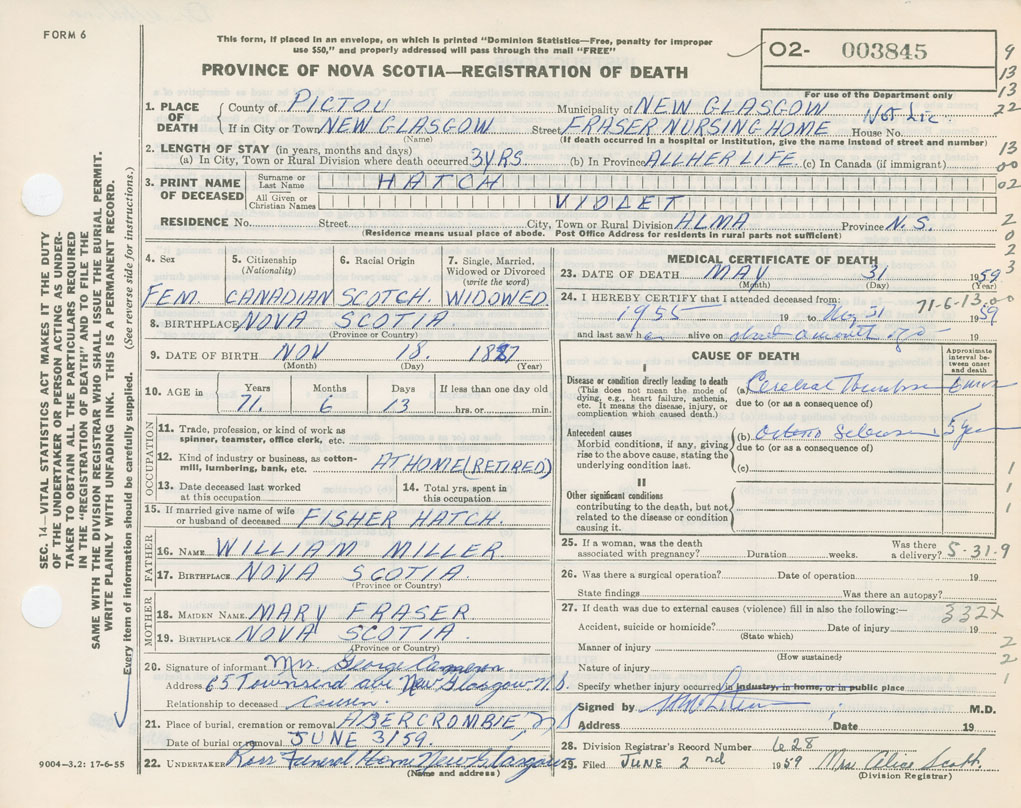 FORM 6
This form, if placed in an envelope, on which is printed "Dominion Statistics—Free, penalty for improper
use $50," and properly addressed will pass through the mail "FREE"
PROVINCE OF NOVA SCOTIA—REGISTRATION OF DEATH
O2- 003845
For use of the Department only
9
13
13
22
13
00
02
2
0
2
3
1. PLACE OF DEATH
County of PICTOU Municipality of NEW GLASGOW
If in City or Town NEW GLASGOW Street FRASER NURSING HOME House No. Not Lic.
(Name) (If death occurred in a hospital or institution, give the name instead of street and number)
2. LENGTH OF STAY (in years, months and days)
(a) In City, Town or Rural Division where death occurred 3 YRS (b) In Province ALL HER LIFE (c) In Canada (if immigrant)
3. PRINT NAME OF DECEASED
Surname or Last Name HATCH
All Given or Christian Names VIOLET
RESIDENCE No. Street City, Town or Rural Division ALMA Province N.S.
(Residence means usual place of abode. Post Office Address for residents in rural parts not sufficient)
4. Sex 5. Citizenship (Nationality) 6. Racial Origin 7. Single, Married, Widowed or Divorced (write the word)
FEM. CANADIAN SCOTCH. WIDOWED
8. BIRTHPLACE NOVA SCOTIA
(Province or Country)
9. DATE OF BIRTH NOV 18. 1887
(Month) (Day) (Year)
10. AGE in Years Months Days If less than one day old
71. 6 13 hrs. or min.
OCCUPATION
11. Trade, profession, or kind of work as
spinner, teamster, office clerk, etc.
12. Kind of industry or business, as cotton-
mill, lumbering, bank, etc. AT HOME (RETIRED)
13. Date deceased last worked at this occupation 14. Total yrs. spent in this occupation
15. If married give name of wife
or husband of deceased FISHER HATCH.
FATHER
16. NAME WILLIAM MILLER
17. BIRTHPLACE NOVA SCOTIA.
(Province or Country)
MOTHER
18. MAIDEN NAME MARY FRASER
19. BIRTHPLACE NOVA SCOTIA.
(Province or Country)
20. Signature of informant Mrs George Cameron
Address 65 Townsend ave New Glasgow N.S.
Relationship to deceased Cousin.
21. Place of burial, cremation or removal ABERCROMBIE, N S
Date of burial or removal JUNE 3/59.
22. UNDERTAKER Ross Funeral Home New Glasgow
(Name and address)
MEDICAL CERTIFICATE OF DEATH
23. DATE OF DEATH MAY 31 1959
(Month) (Day) (Year)
24. I HEREBY CERTIFY that I attended deceased from: 71-6-13.00
1955 19 to May 31 1959
and last saw her alive on about a month ago
CAUSE OF DEATH
Approximate interval between onset and death
I
Disease or condition directly leading to death
(This does not mean the mode of
dying, e.g., heart failure, asthenia,
etc. It means the disease, injury, or
complication which caused death.)
(a) Cerebral Thrombosis
due to (or as a consequence of)
Antecedent causes
Morbid conditions, if any, giving
rise to the above cause, stating the
underlying condition last.
(b) 5 years
due to (or as a consequence of)
(c)
II
Other significant conditions
contributing to the death, but not
related to the disease or condition
causing it.
1
1
1
25. If a woman, was the death
associated with pregnancy? Duration weeks. Was there a delivery? 5-31.9
26. Was there a surgical operation? Date of operation 19
State findings Was there an autopsy?
27. If death was due to external causes (violence) fill in also the following:— 332x
Accident, suicide or homicide? Date of injury 19
(State which)
Manner of injury 2
(How sustained)
2
Nature of injury 1
Specify whether injury occurred in industry, in home, or in public place
Signed by M.D.
Address Date 19
28. Division Registrar's Record Number 628
29. Filed JUNE 2nd 1959 Mrs Alice Scott.
(Division Registrar)
SEC. 14—VITAL STATISTICS ACT MAKES IT THE DUTY
OF THE UNDERTAKER OR PERSON ACTING AS UNDER-
TAKER TO OBTAIN ALL THE PARTICULARS REQUIRED
IN THE "REGISTRATION OF DEATH" AND TO FILE THE
SAME WITH THE DIVISION REGISTRAR WHO SHALL ISSUE THE BURIAL PERMIT.
WRITE PLAINLY WITH UNFADING INK. THIS IS A PERMANENT RECORD.
Every item of information should be carefully supplied. (See reverse side for instructions.)
9004-3.2: 17-6-55